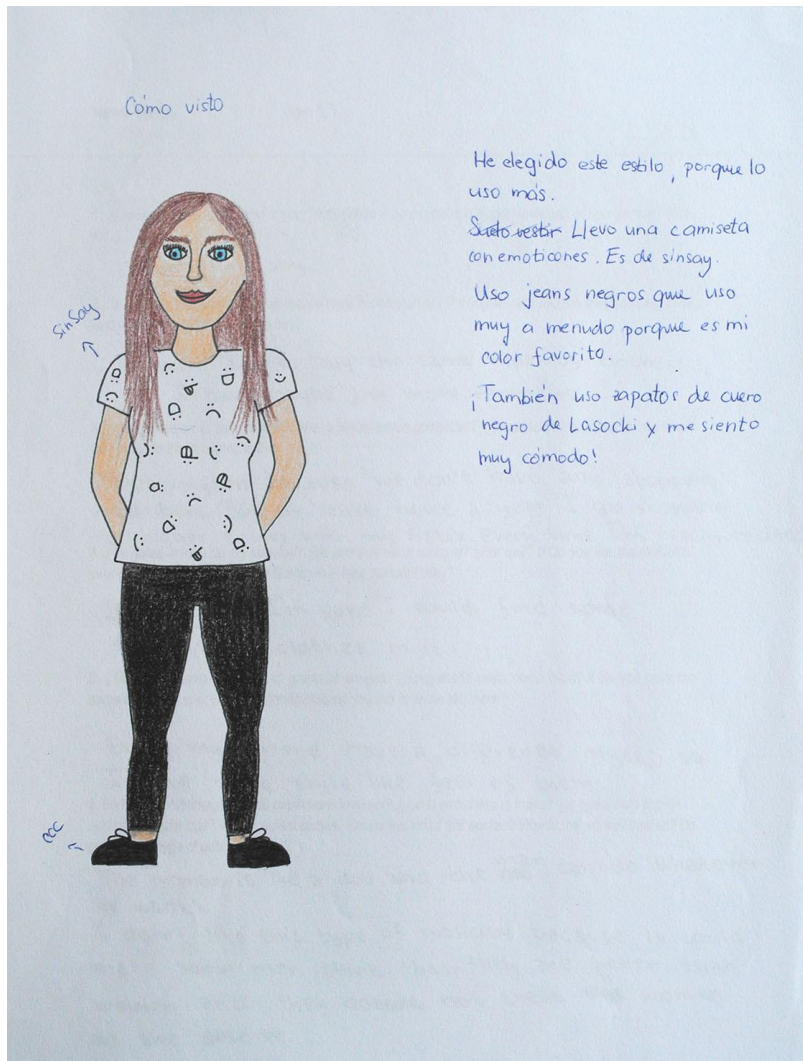 Cómo visto
He elegido este estilo, porque lo
uso más.
Suelo vestir Llevo una camiseta
con emoticones. Es de sinsay.
Uso jeans negros que uso
muy a menudo porque es mi
color favorito.
¡También uso zapatos de cuero
negro de Lasocki y me siento
muy cómodo!
SinSay
ccc